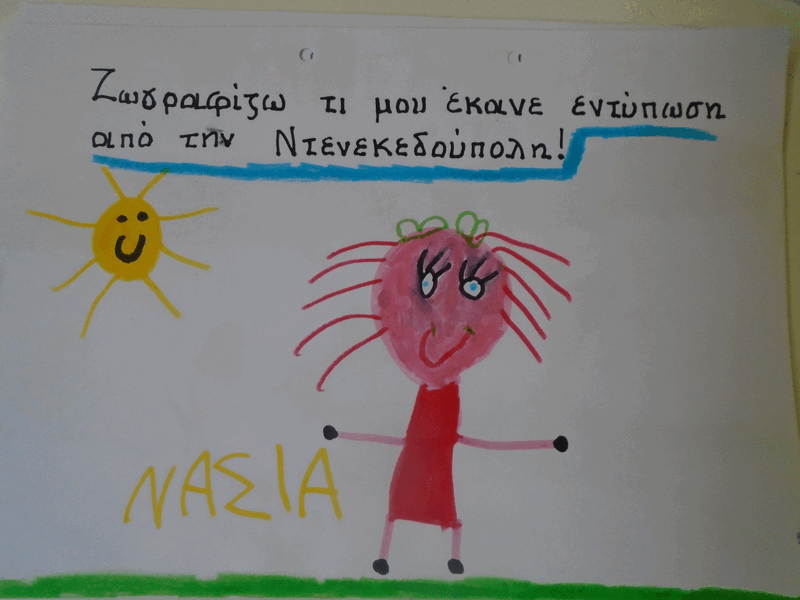 Ζωγραφίζω τι μου έκανε εντύπωση
από την Ντενεκεδούπολη!
ΝΑΣΙΑ